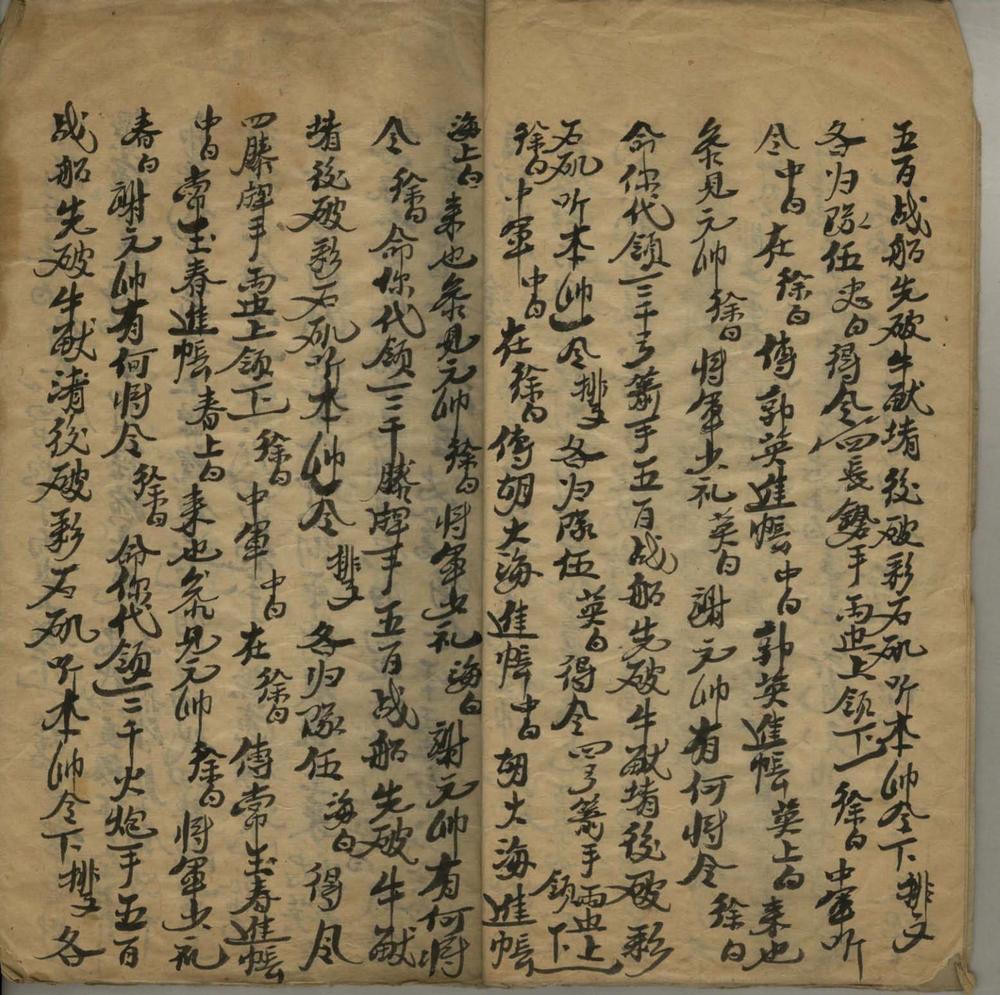 五百战船先破牛猷堵後破彩石矶听本帅令下排又
各归隊伍忠白得令四長鎗手両边上领下徐白中軍听
令中白在徐白傳郭英進帳中白郭英進帳英上白来也
参見元帅徐白将軍少礼英白謝元帅有何将令徐白
命你代领三千弓箭手五百战船先破牛猷堵後破彩
石矶听本帅令排又各归隊伍英白得令四弓箭手両边上领下
徐白中軍中白在徐白傳胡大海進帳中白胡大海進帳
海上白来也参見元帅徐白将軍少礼海白謝元帅有何将
令徐白命你代领三千藤牌手五百战船先破牛猷
堵後破彩石矶听本帅令排又各归隊伍海白得令
四藤牌手両边上领下徐白中軍中白在徐白傳常玉春進帳
中白常玉春進帳春上白来也参見元帅徐白将軍少礼
春白謝元帅有何将令徐白命你代领三千火炮手五百
战船先破牛猷渚後破彩石矶听本帅令下排又各